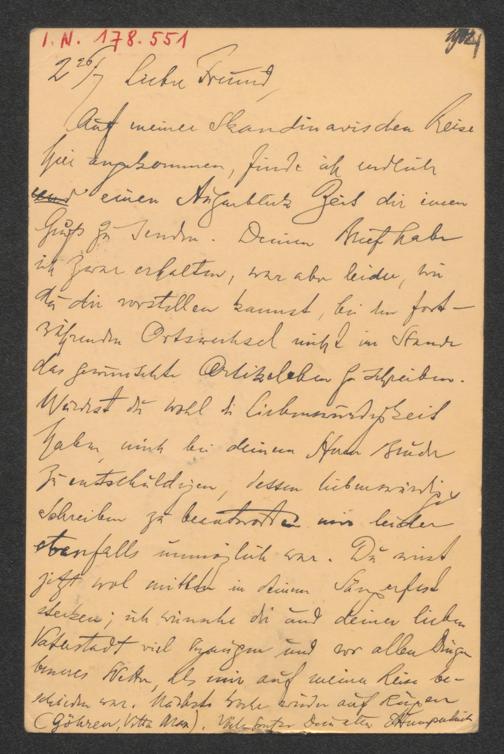 I. N. 178.551
1902
26/7 Lieber Freund,
Auf meiner Skandinavischen Reise
hier angekommen, finde ich endlich
und einen Augenblick Zeit dir einen
Gruß zu senden. Deinen Brief habe
ich zwar erhalten, war aber leider, wie
du dir vorstellen kannst, bei dem fort-
währenden Ortswechsel nicht im Stande
das gewünschte Artikelchen zu schreiben.
Würdest du wohl die Liebenswürdigkeit
haben, mich bei deinem Herrn Bruder
zu entschuldigen, dessen liebenswürdiges
Schreiben zu beantworten mir leider
ebenfalls unmöglich war. Du wirst
jetzt wol mitten in deinem Sängerfest
stecken; ich wünsche dir und deiner lieben
Vaterstadt viel Vergnügen und vor allen Dingen
besseres Wetter, als mir auf meiner Reise be-
schieden war. Nächste Woche wieder auf Rügen
(Göhren, Villa Max). Dein alter EHumperdinck